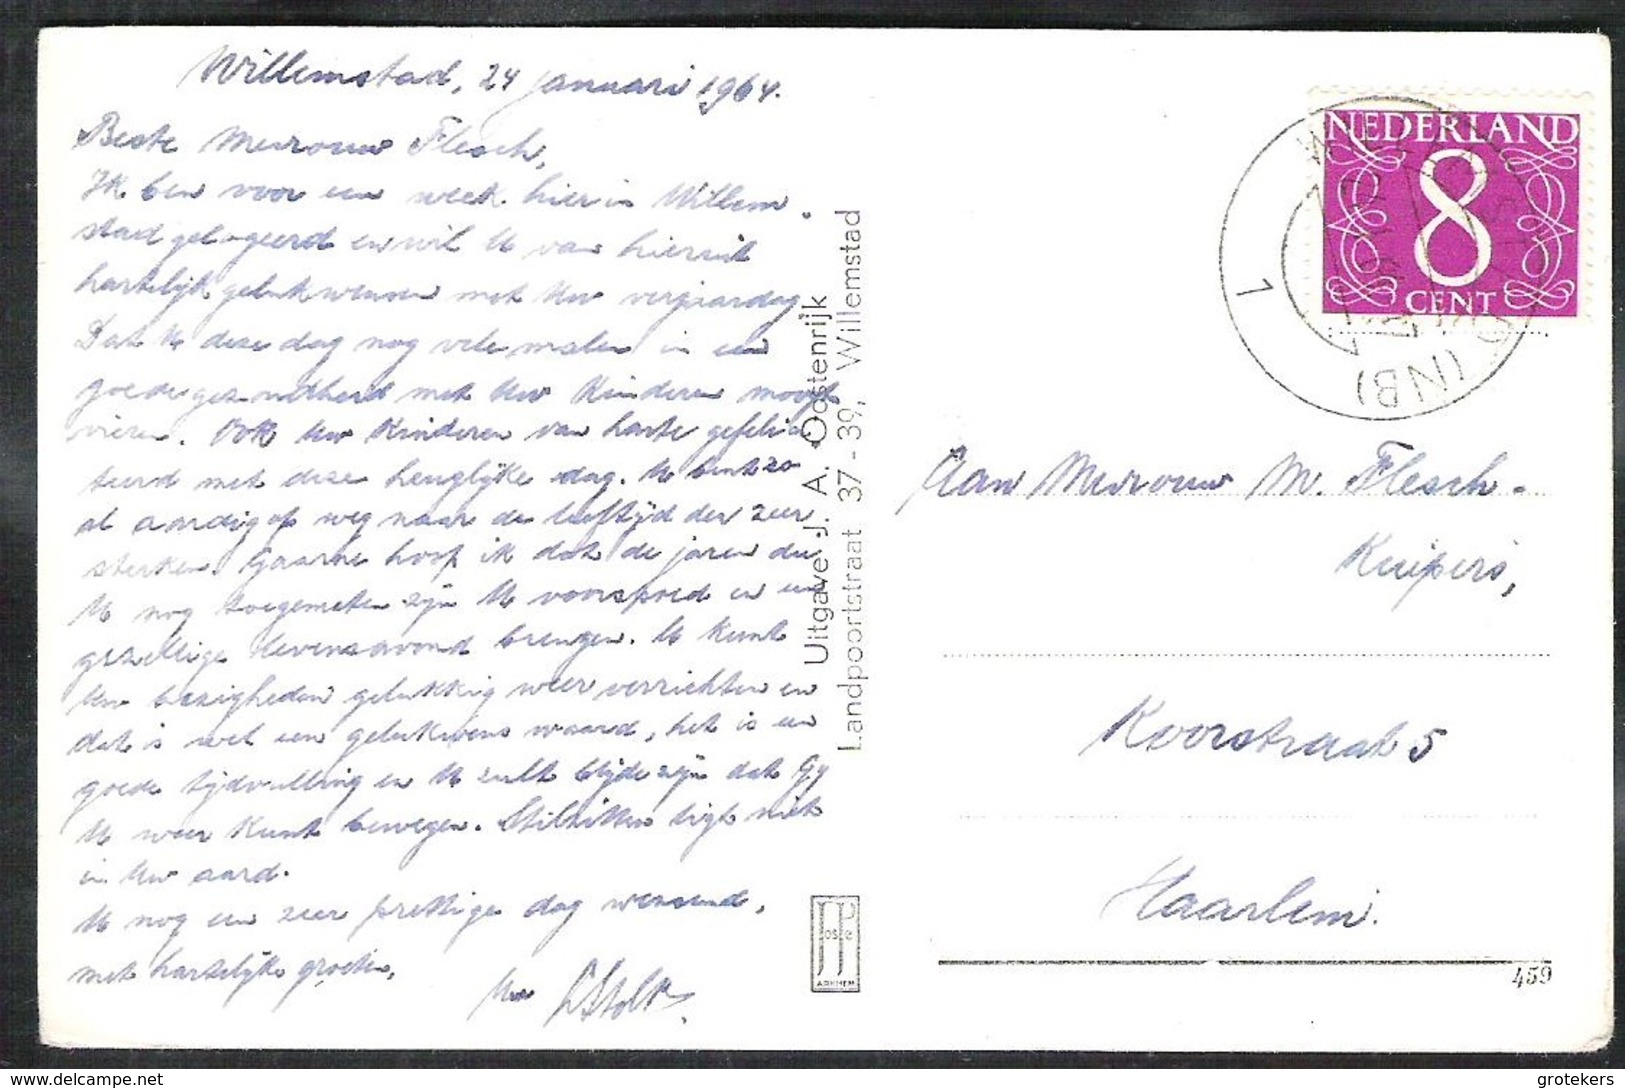 Willemstad, 24 januari 1964.
Beste Mevrouw Flesch,
Ik ben voor een week hier in Willem-
stad gelogeerd en wil U van hieruit
hartelijk gelukwensen met Uw verjaardag.
Dat U deze dag nog vele malen in een
goede gezondheid met Uw Kinderen moogt
vieren. Ook Uw Kinderen van harte gefelici-
teerd met deze heuglijke dag. U bent zo
al aardig op weg naar de leeftijd der zeer
sterken. Gaarne hoop ik dat de jaren die
U nog toegemeten zijn U voorspoed en een
gezellige levensavond brengen. U kunt
Uw bezigheden gelukkig weer verrichten en
dat is wel een gelukwens waard, het is een
goede tijdvulling en U zult blijde zijn dat Gy
U weer kunt bewegen. Stilzitten ligt niet
in Uw aard.
U nog een zeer prettige dag wensend,
met hartelijke groeten,
Uw
Uitgave J. A. Oostenrijk
Landpoortstraat 37-39, Willemstad
JosPé
ARNHEM
NEDERLAND
8
CENT
(NB)
1
Aan Mevrouw M. Flesch-
Kuipers,
Koorstraat 5
Haarlem.
459
delcampe.net
grotekers